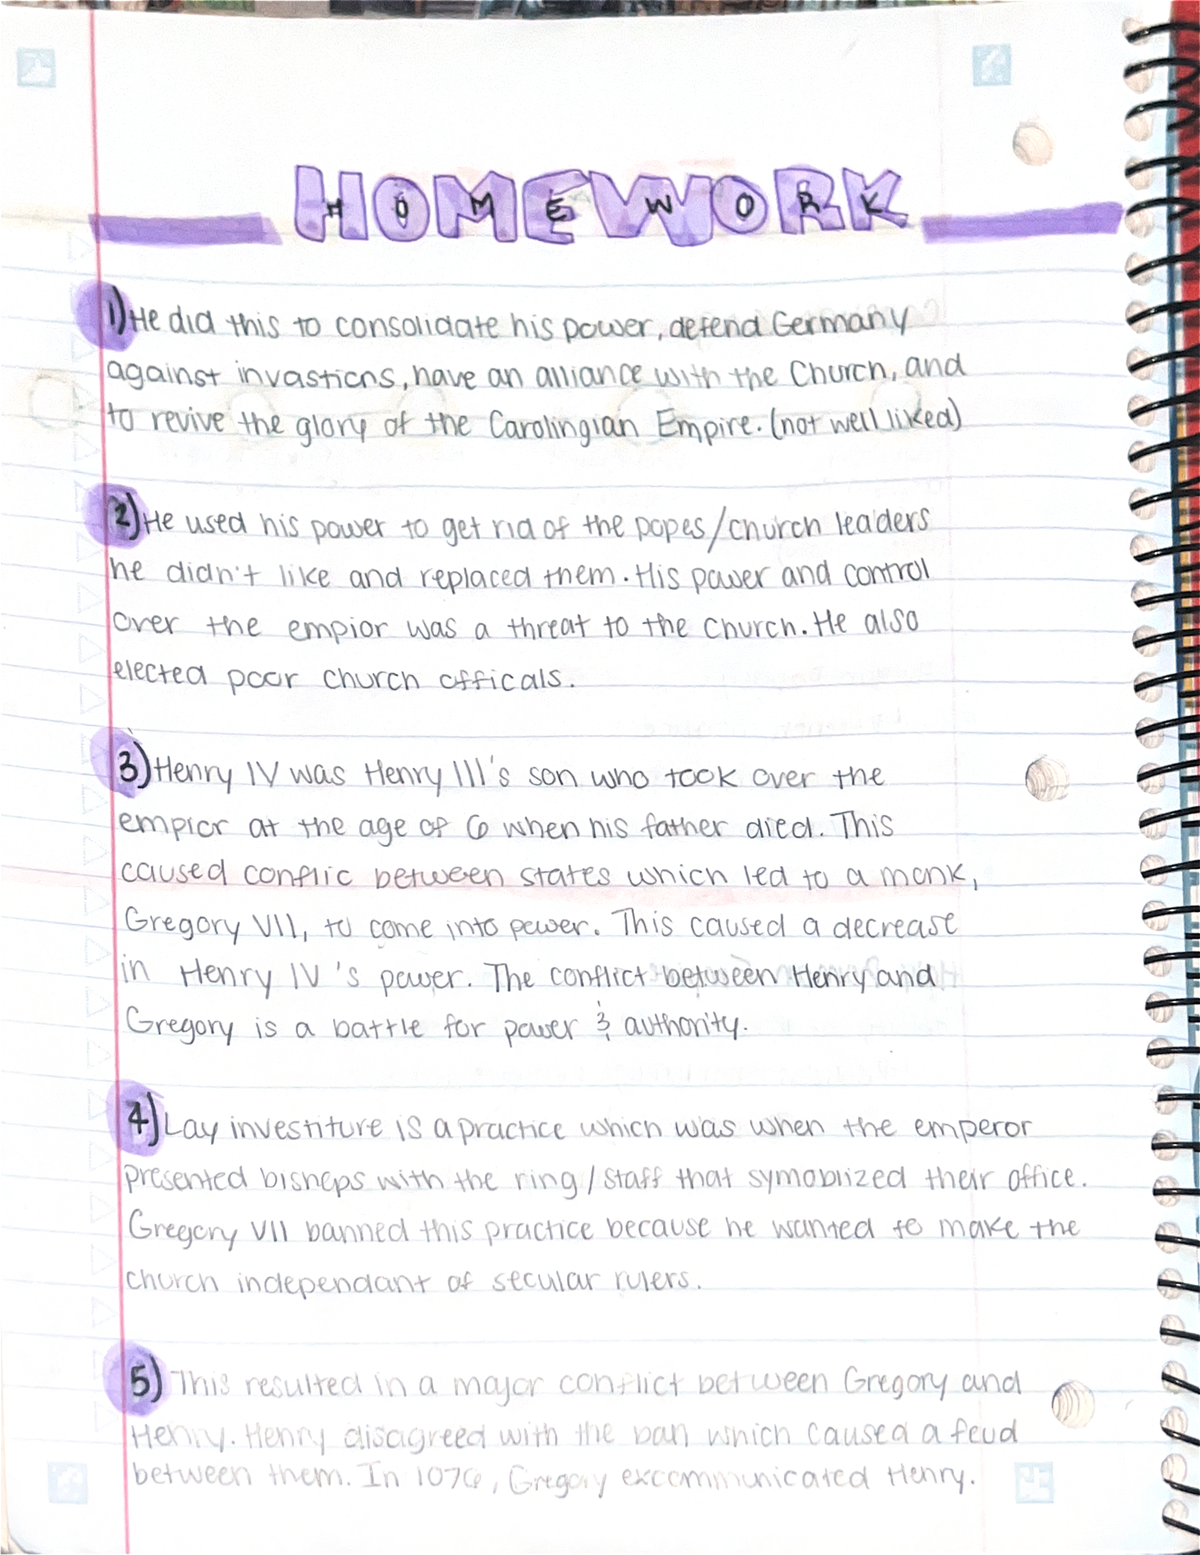 HOMEWORK
1) He did this to consolidate his power, defend Germany
against invastions, have an alliance with the Church, and
to revive the glory of the Carolingian Empire. (not well liked)
2) He used his power to get rid of the popes/church leaders
he didn't like and replaced them. His power and control
over the empior was a threat to the church. He also
elected poor church officals.
3) Henry IV was Henry III's son who took over the
empior at the age of 6 when his father died. This
caused conflic between states which led to a monk,
Gregory VII, to come into power. This caused a decrease
in Henry IV 's power. The conflict between Henry and
Gregory is a battle for power & authority.
4) Lay investiture is a practice which was when the emperor
presented bishops with the ring/staff that symoblized their office.
Gregory VII banned this practice because he wanted to make the
church independant of secular rulers.
5) This resulted in a major conflict between Gregory and
Henry. Henry disagreed with the ban which caused a feud
between them. In 1076, Gregory excommunicated Henry.